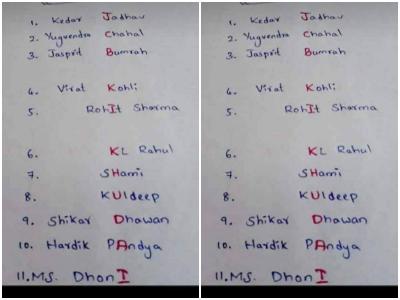 1. Kedar Jadhav
2. Yugvendra Chahal
3. Jasprit Bumrah
4. Virat Kohli
5. RohIt Sharma
6. KL Rahul
7. SHami
8. KUldeep
9. Shikar Dhawan
10. Hardik PAndya
11. M.S. DhonI
1. Kedar Jadhav
2. Yugvendra Chahal
3. Jasprit Bumrah
4. Virat Kohli
5. RohIt Sharma
6. KL Rahul
7. SHami
8. KUldeep
9. Shikar Dhawan
10. Hardik PAndya
11. M.S. DhonI